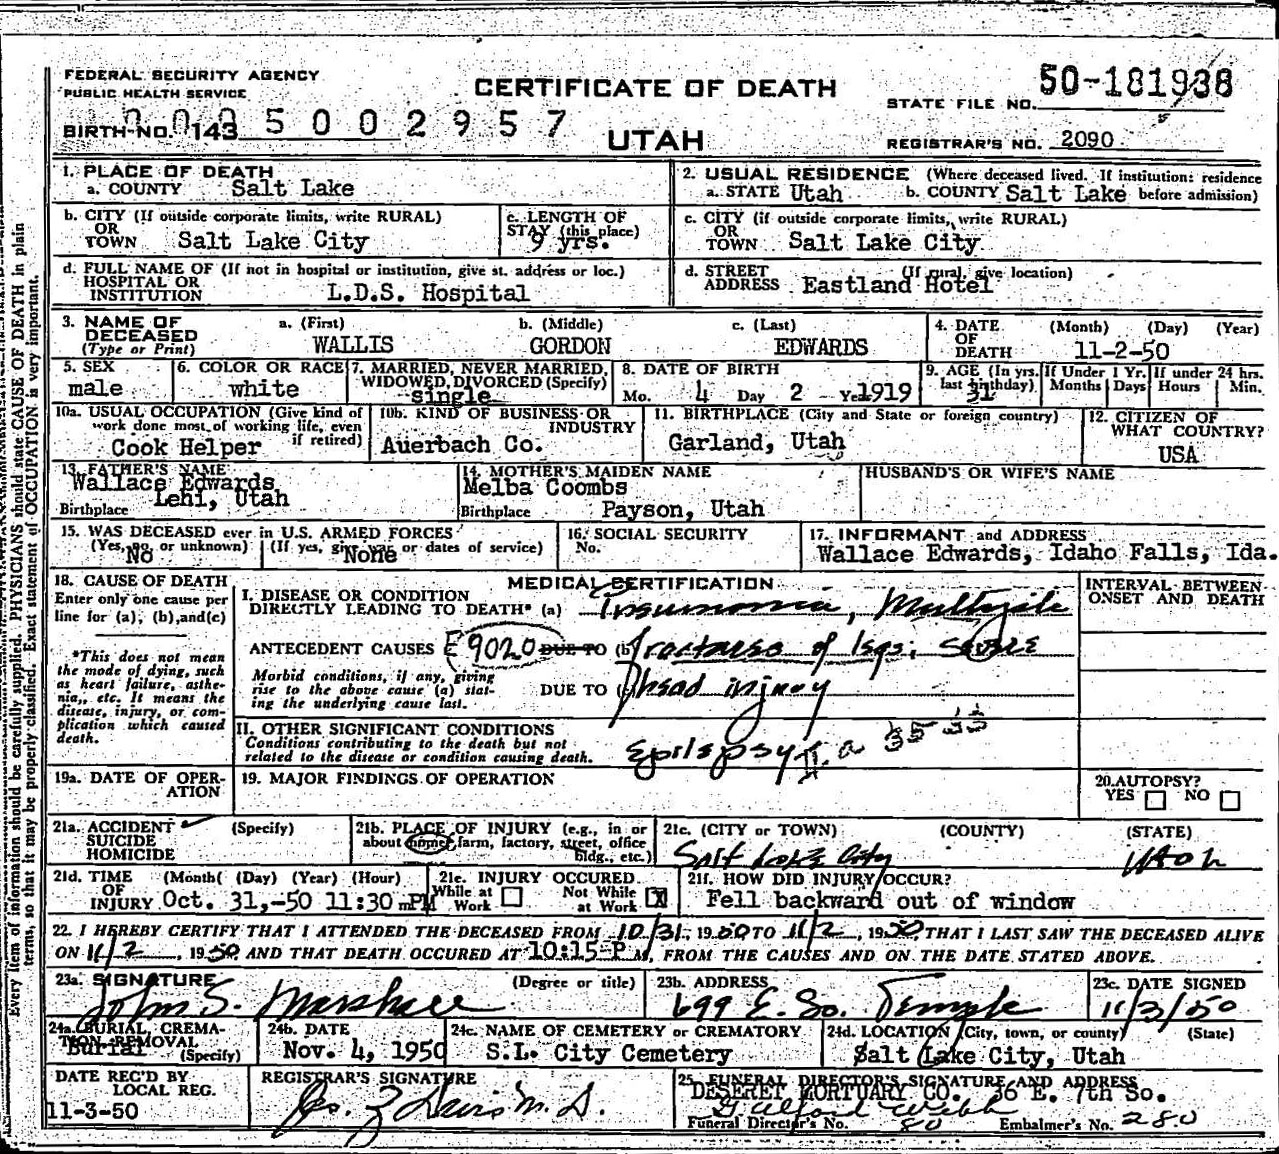 FEDERAL SECURITY AGENCY
PUBLIC HEALTH SERVICE
CERTIFICATE OF DEATH
UTAH
50-181938
STATE FILE NO.
BIRTH NO. 143 5002957
REGISTRAR'S NO. 2090
1. PLACE OF DEATH
a. COUNTY Salt Lake
2. USUAL RESIDENCE (Where deceased lived. If institution: residence before admission)
a. STATE Utah b. COUNTY Salt Lake
b. CITY (If outside corporate limits, write RURAL)
OR TOWN Salt Lake City
c. LENGTH OF STAY (this place)
9 yrs.
c. CITY (if outside corporate limits, write RURAL)
OR TOWN Salt Lake City
d. FULL NAME OF (If not in hospital or institution, give st. address or loc.)
HOSPITAL OR INSTITUTION L.D.S. Hospital
d. STREET ADDRESS (If rural, give location)
Eastland Hotel
3. NAME OF DECEASED (Type or Print)
a. (First) b. (Middle) c. (Last)
WALLIS GORDON EDWARDS
4. DATE OF DEATH (Month) (Day) (Year)
11-2-50
5. SEX
male
6. COLOR OR RACE
white
7. MARRIED, NEVER MARRIED, WIDOWED, DIVORCED (Specify)
single
8. DATE OF BIRTH
Mo. 4 Day 2 Ye 1919
9. AGE (In yrs. last birthday)
31
If Under 1 Yr. Months Days
If under 24 hrs. Hours Min.
10a. USUAL OCCUPATION (Give kind of work done most of working life, even if retired)
Cook Helper
10b. KIND OF BUSINESS OR INDUSTRY
Auerbach Co.
11. BIRTHPLACE (City and State or foreign country)
Garland, Utah
12. CITIZEN OF WHAT COUNTRY?
USA
13. FATHER'S NAME
Wallace Edwards
Birthplace Lehi, Utah
14. MOTHER'S MAIDEN NAME
Melba Coombs
Birthplace Payson, Utah
HUSBAND'S OR WIFE'S NAME
15. WAS DECEASED ever in U.S. ARMED FORCES
(Yes, no, or unknown) (If yes, give war or dates of service)
No None
16. SOCIAL SECURITY No.
17. INFORMANT and ADDRESS
Wallace Edwards, Idaho Falls, Ida.
18. CAUSE OF DEATH
Enter only one cause per line for (a), (b), and (c)
*This does not mean the mode of dying, such as heart failure, asthenia, etc. It means the disease, injury, or complication which caused death.
MEDICAL CERTIFICATION
I. DISEASE OR CONDITION
DIRECTLY LEADING TO DEATH* (a) Pneumonia, Multiple
ANTECEDENT CAUSES E9020 DUE TO (b) fractures of legs; severe
Morbid conditions, if any, giving rise to the above cause (a) stating the underlying cause last.
DUE TO (c) head injury
II. OTHER SIGNIFICANT CONDITIONS
Conditions contributing to the death but not related to the disease or condition causing death.
Epilepsy
INTERVAL BETWEEN ONSET AND DEATH
19a. DATE OF OPERATION
19. MAJOR FINDINGS OF OPERATION
20. AUTOPSY?
YES NO
21a. ACCIDENT ✓ (Specify)
SUICIDE
HOMICIDE
21b. PLACE OF INJURY (e.g., in or about home, farm, factory, street, office bldg., etc.)
21c. (CITY or TOWN) (COUNTY) (STATE)
Salt Lake City Utah
21d. TIME OF INJURY (Month) (Day) (Year) (Hour)
Oct. 31,-50 11:30 PM
21e. INJURY OCCURED
While at Work Not While at Work X
21f. HOW DID INJURY OCCUR?
Fell backward out of window
22. I HEREBY CERTIFY THAT I ATTENDED THE DECEASED FROM 10/31, 1950 TO 11/2, 1950, THAT I LAST SAW THE DECEASED ALIVE
ON 11/2, 1950 AND THAT DEATH OCCURED AT 10:15 P M, FROM THE CAUSES AND ON THE DATE STATED ABOVE.
23a. SIGNATURE (Degree or title)
John S. Marshall
23b. ADDRESS
699 E. So. Temple
23c. DATE SIGNED
11/3/50
24a. BURIAL, CREMATION, REMOVAL (Specify)
Burial
24b. DATE
Nov. 4, 1950
24c. NAME OF CEMETERY or CREMATORY
S.L. City Cemetery
24d. LOCATION (City, town, or county) (State)
Salt Lake City, Utah
DATE REC'D BY LOCAL REG.
11-3-50
REGISTRAR'S SIGNATURE
25. FUNERAL DIRECTOR'S SIGNATURE AND ADDRESS
DESERET MORTUARY CO. 36 E. 7th So.
Funeral Director's No. 80 Embalmer's No. 280
Every item of information should be carefully supplied. PHYSICIANS should state CAUSE OF DEATH in plain
terms, so that it may be properly classified. Exact statement of OCCUPATION is very important.